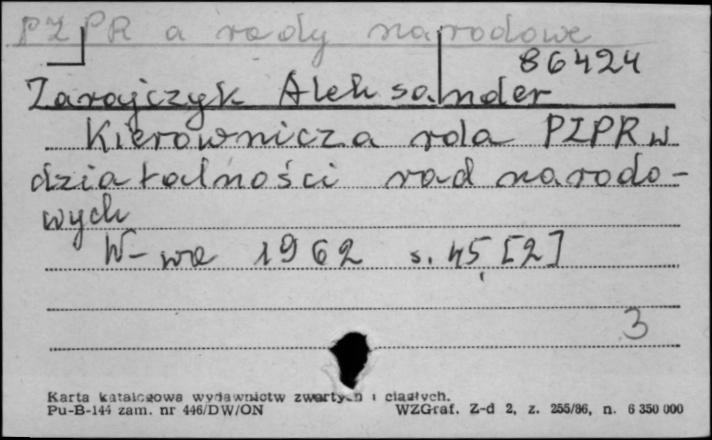 PZPR a rady narodowe
86424
Zarajczyk Aleksander
Kierownicza rola PZPR w
działalności rad narodo-
wych
W-wa 1962 s. 45, [2]
3
Karta katalogowa wydawnictw zwartych i ciągłych.
Pu-B-144 zam. nr 446/DW/ON WZGraf. Z-d 2, z. 255/86, n. 6 350 000